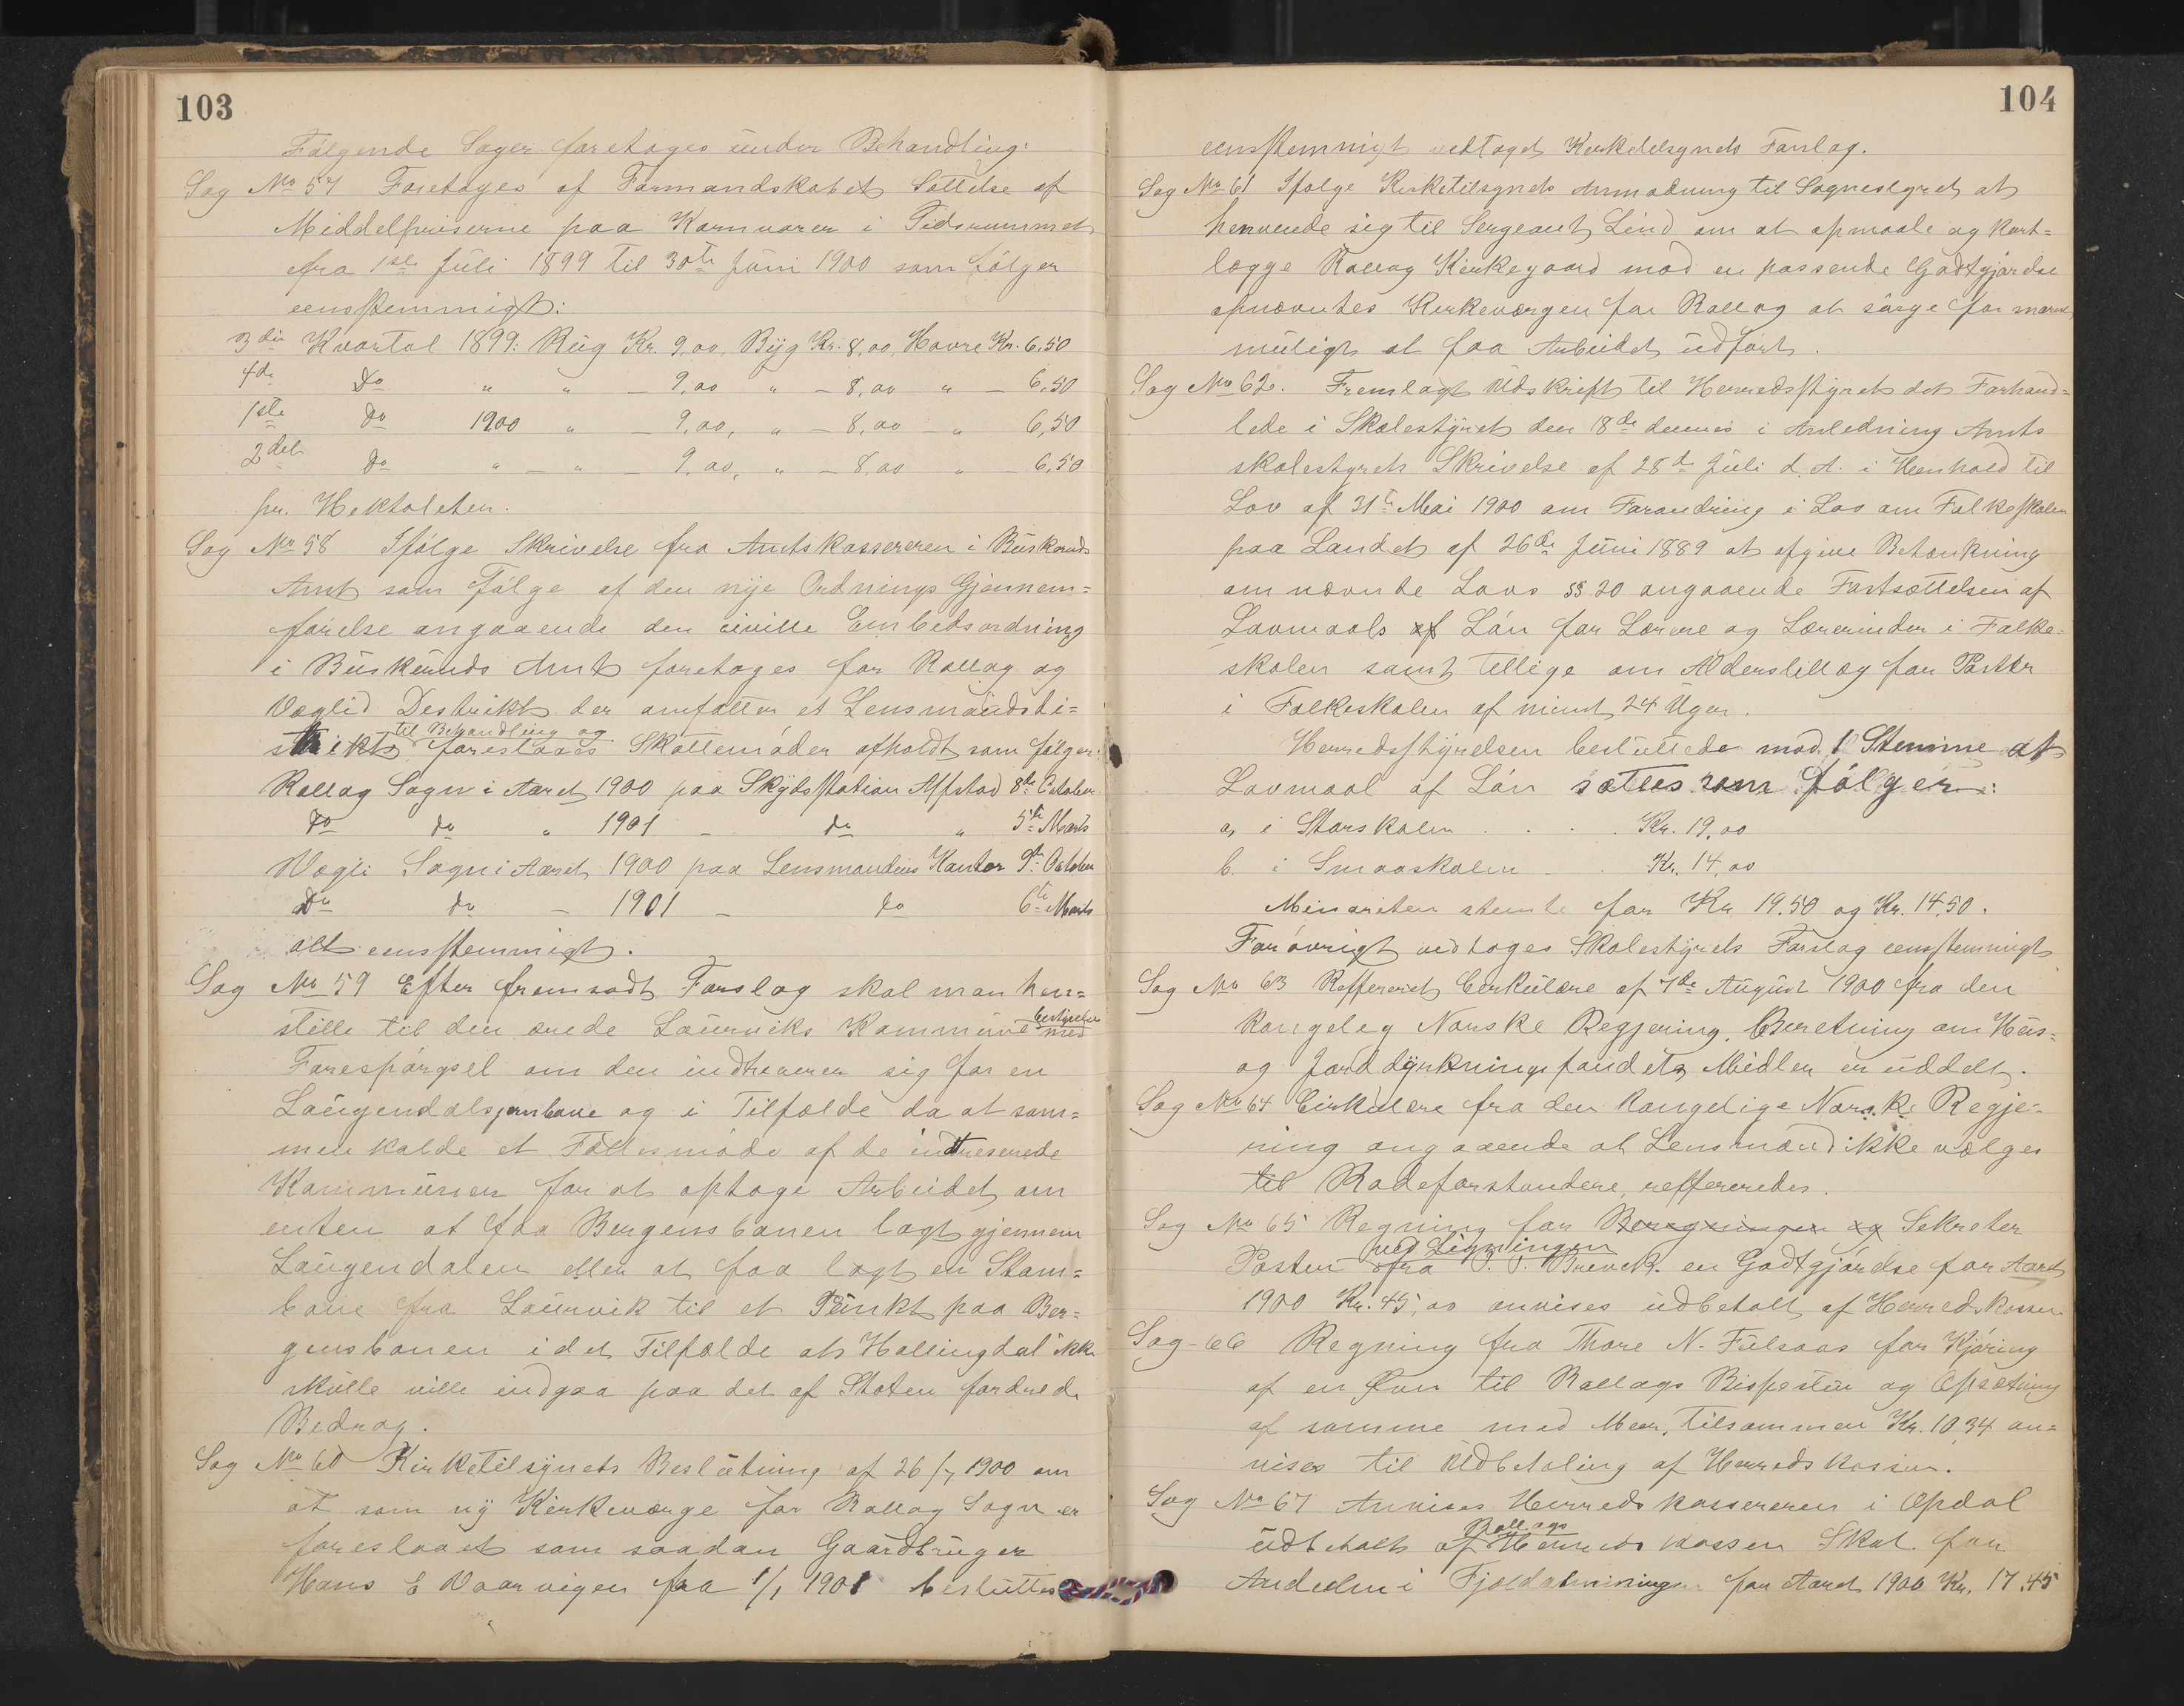 103
Følgende Sager foretoges under Behandling:
Sag No 57 Foretoges af Formandskabet Sættelse af
Middelpriserne paa Kornvarer i Tidsrummet
fra 1ste Juli 1899 til 30te Juni 1900 som følger
eensstemmigt:
3die Kvartal 1899: Rug Kr. 9,00, Byg Kr. 8,00, Havre Kr. 6,50
4de do " " — 9,00 " — 8,00 " — 6,50
1ste do 1900 " — 9,00, " — 8,00 — " 6,50
2det do " — " 9,00, " — 8,00 " — 6,50
pr. Hektoliter.
Sag No 58 Ifølge Skrivelse fra Amtskassereren i Buskeruds
Amt som Følge af den nye Ordnings Gjennem-
førelse angaaende den civille Embedsordning
i Buskeruds Amt foretoges for Rollag og
Væglid Destrikt der omfatter et Lensmandsdi-
strikt til Behandling og foreslaaes Skattemøder afholdt som følger:
Rollag Sogn i Aaret 1900 paa Skydsstation Alfstad 8de October
do do " 1901 — do " 5te Marts
Vægli Sogn i Aaret 1900 paa Lensmandens Kontor 9de October
do do — 1901 — do 6te Marts
alt eensstemmigt.
Sag No 59 Efter fremsadt Forslag skal man hen-
stille til den ærede Laurviks Kommune bestyrelse med
Forespørgsel om den indtreserer sig for en
Laugendalsjernbane og i Tilfælde da at sam-
menkalde et Fællesmøde af de indtreserede
Kommuner for at optage Arbeidet om
enten at faa Bergensbanen lagt gjennem
Laugendalen eller at faa lagt en Stam-
bane fra Laurvik til et Punkt paa Ber-
gensbanen i det Tilfælde at Hallingdal ikke
skulle ville indgaa paa det af Staten fordrede
Bedrag.
Sag No 60 Kirketilsynets Beslutning af 26/7 1900 om
at som ny Kirkeværge for Rollag Sogn er
foreslaaet som saadan Gaardbruger
Hans E Vaarvigen fra 1/1 1901 besluttes
104
eensstemmigt vedtaget Kirketilsynets Forslag.
Sag No 61 Ifølge Kirketilsynets Anmodning til Sognestyret at
henvende sig til Sergeant Lind om at opmaale og kart-
lægge Rollag Kirkegaard mod en passende Godtgjørelse
opnævntes Kirkeværgen for Rollag at sørge for snarest
muligt at faa Arbeidet udført.
Sag No 62. Fremlagt Udskrift til Herredsstyret det Forhand-
lede i Skolestyret den 18de dennes i Anledning Amts
skolestyrets Skrivelse af 28de Juli d. A. i Henhold til
Lov af 31te Mai 1900 om Forandring i Lov om Folkeskolen
paa Landet af 26de Juni 1889 at afgive Betænkning
om nævnte Lovs §§ 20 angaaende Fastsættelsen af
Lavmaals af Løn for Lærere og Lærerinder i Folke-
skolen samt tillige om Alderstillæg for Poster
i Folkeskolen af mindst 24 Uger.
Herredsstyrelsen besluttede mod 1 Stemme at
Lavmaal af Løn sættes som følger:
a, i Storskolen . . . . Kr. 19,00
b. i Smaaskolen . . Kr. 14,00
Minoriteten stemte for Kr 19.50 og Kr. 14,50.
Forøvrigt vedtoges Skolestyrets Forslag eensstemmigt
Sag No 63 Reffereret Cirkulære af 7de August 1900 fra den
kongeleg Norske Regjering. Beretning om Hus-
og Jorddyrkningsfondets Midler er uddelt.
Sag No 64 Cirkulære fra den kongelige Norske Regje-
ring angaaende at Lensmænd ikke vælges
til Rodeforstandere, reffereredes.
Sag No 65 Regning for Beregningen og Sekretær
Posten ved Ligningen fra en Godtgjørelse for Aaret
1900 Kr. 45,00 anvises udbetalt af Herredskassen
Sag - 66 Regning fra Thore N. Fulsaas for Kjøring
af en Ovn til Rollags Bispestue og Opsætning
af samme med Meer, tilsammen Kr. 10,34 an-
vises til Udbetaling af Herredskassen.
Sag No 67 Anvises Herredskassereren i Opdal
udbetalt af Rollags Herreds kassen Skat for
Andelen i Fjoldalminingen for Aaret 1900 Kr. 17,45